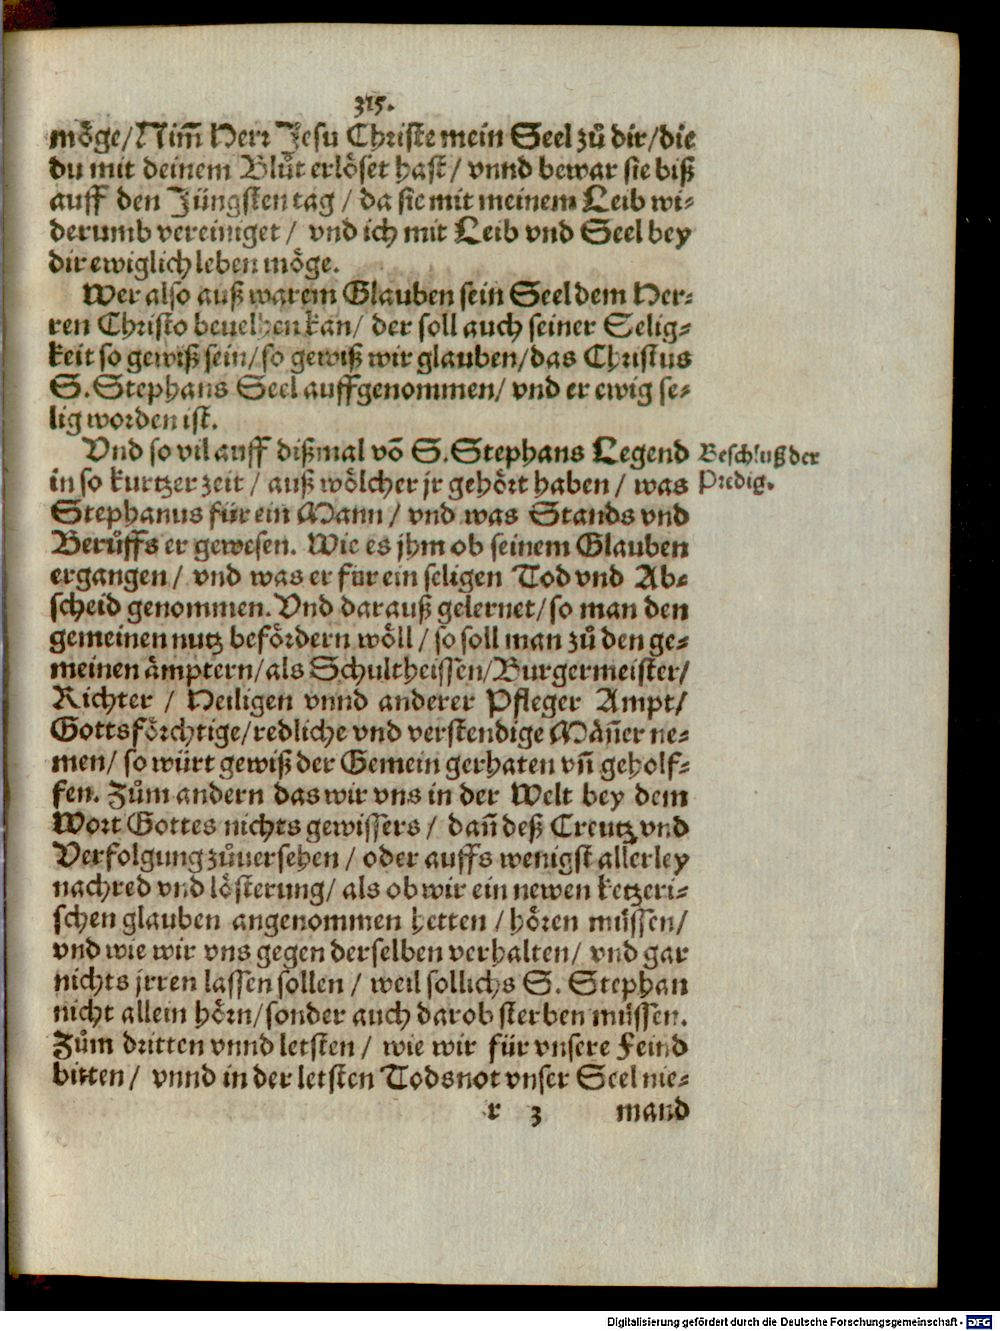 315.
möge/ Nim̃ Herr Jesu Christe mein Seel zů dir/ die
du mit deinem Blůt erlöset hast/ vnnd bewar sie biß
auff den Jüngsten tag/ da sie mit meinem Leib wi-
derumb vereiniget/ vnd ich mit Leib vnd Seel bey
dir ewiglich leben möge.
Wer also auß warem Glauben sein Seel dem Her-
ren Christo beuelhen kan/ der soll auch seiner Selig-
keit so gewiß sein/ so gewiß wir glauben/ das Christus
S. Stephans Seel auffgenommen/ vnd er ewig se-
lig worden ist.
Vnd so vil auff dißmal võ S. Stephans Legend
Beschluß der
in so kurtzer zeit/ auß wölcher jr gehört haben/ was
Predig.
Stephanus für ein Mann/ vnd was Stands vnd
Berůffs er gewesen. Wie es jhm ob seinem Glauben
ergangen/ vnd was er für ein seligen Tod vnd Ab-
scheid genommen. Vnd darauß gelernet/ so man den
gemeinen nutz befördern wöll/ so soll man zů den ge-
meinen ämptern/ als Schultheissen/ Burgermeister/
Richter/ Heiligen vnnd anderer Pfleger Ampt/
Gottsförchtige/ redliche vnd verstendige Mäñer ne-
men/ so würt gewiß der Gemein gerhaten vn̄ geholf-
fen. Zům andern das wir vns in der Welt bey dem
Wort Gottes nichts gewissers/ dan̄ deß Creutz vnd
Verfolgung zůuersehen/ oder auffs wenigst allerley
nachred vnd lösterung/ als ob wir ein newen ketzeri-
schen glauben angenommen hetten/ hören müssen/
vnd wie wir vns gegen derselben verhalten/ vnd gar
nichts jrren lassen sollen/ weil sollichs S. Stephan
nicht allein hörn/ sonder auch darob sterben müssen.
Zům dritten vnnd letsten/ wie wir für vnsere Feind
bitten/ vnnd in der letsten Todsnot vnser Seel nie-
r 3 mand
Digitalisierung gefördert durch die Deutsche Forschungsgemeinschaft - DFG